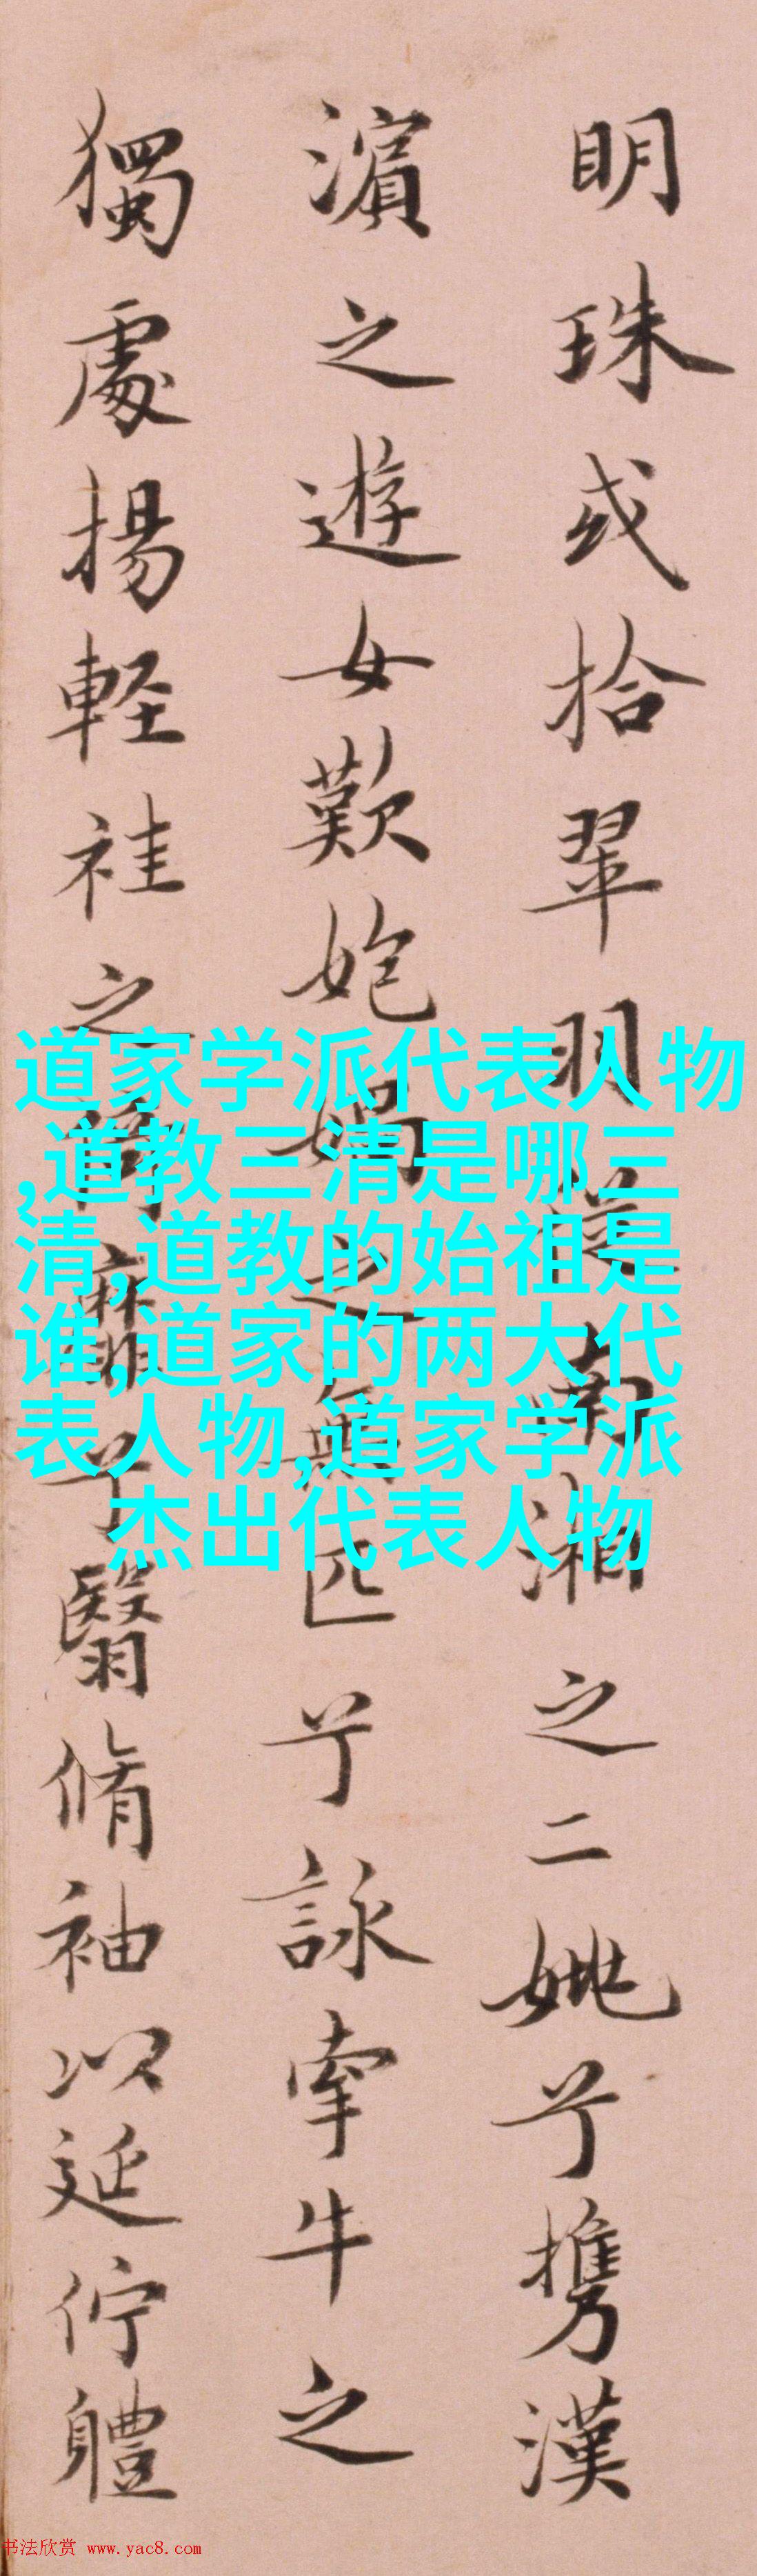 明珠或拾翠羽從南湘之二兮携漢
濱之遊女歎媧之無匹兮詠牽牛之
獨處揚軽袿之猗靡兮翳脩袖以延佇體
道家学派代表人物
,道教三清是哪三
清,道教的始祖是
谁,道家的两大代
表人物,道家学派
杰出代表人物
书法欣赏 www.yac8.com